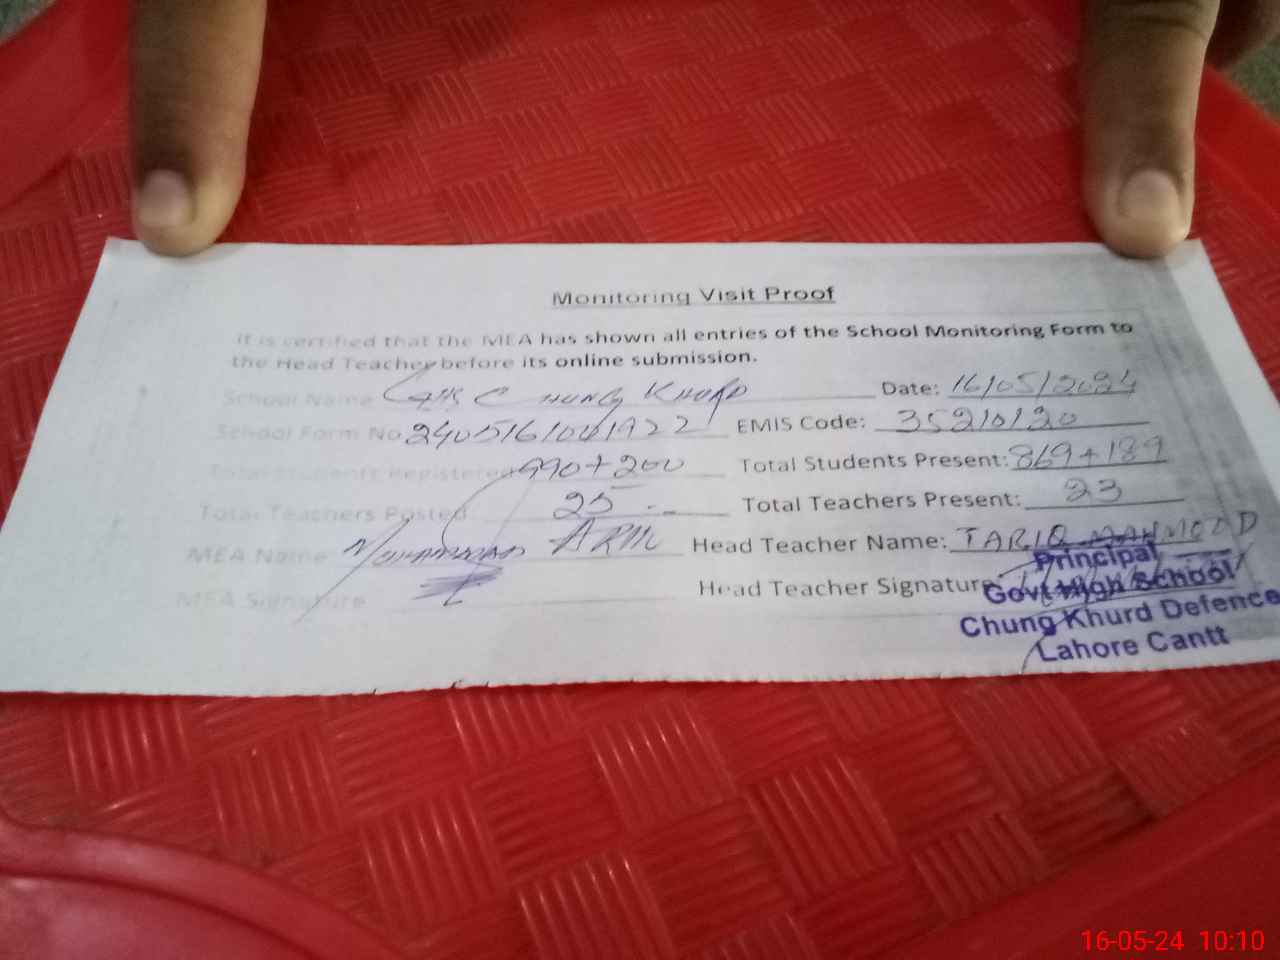 Monitoring Visit Proof
It is certified that the MEA has shown all entries of the School Monitoring Form to
the Head Teacher before its online submission.
School Name GHS CHUNG KHURD Date: 16/05/2024
School Form No. 2405161041922 EMIS Code: 35210120
Total Students Registered 990+200 Total Students Present: 869+189
Total Teachers Posted 25 Total Teachers Present: 23
MEA Name Muhammad Head Teacher Name: TARIQ MAHMOOD
MEA Signature Head Teacher Signature:
Principal
Govt High School
Chung Khurd Defence
Lahore Cantt
16-05-24 10:10